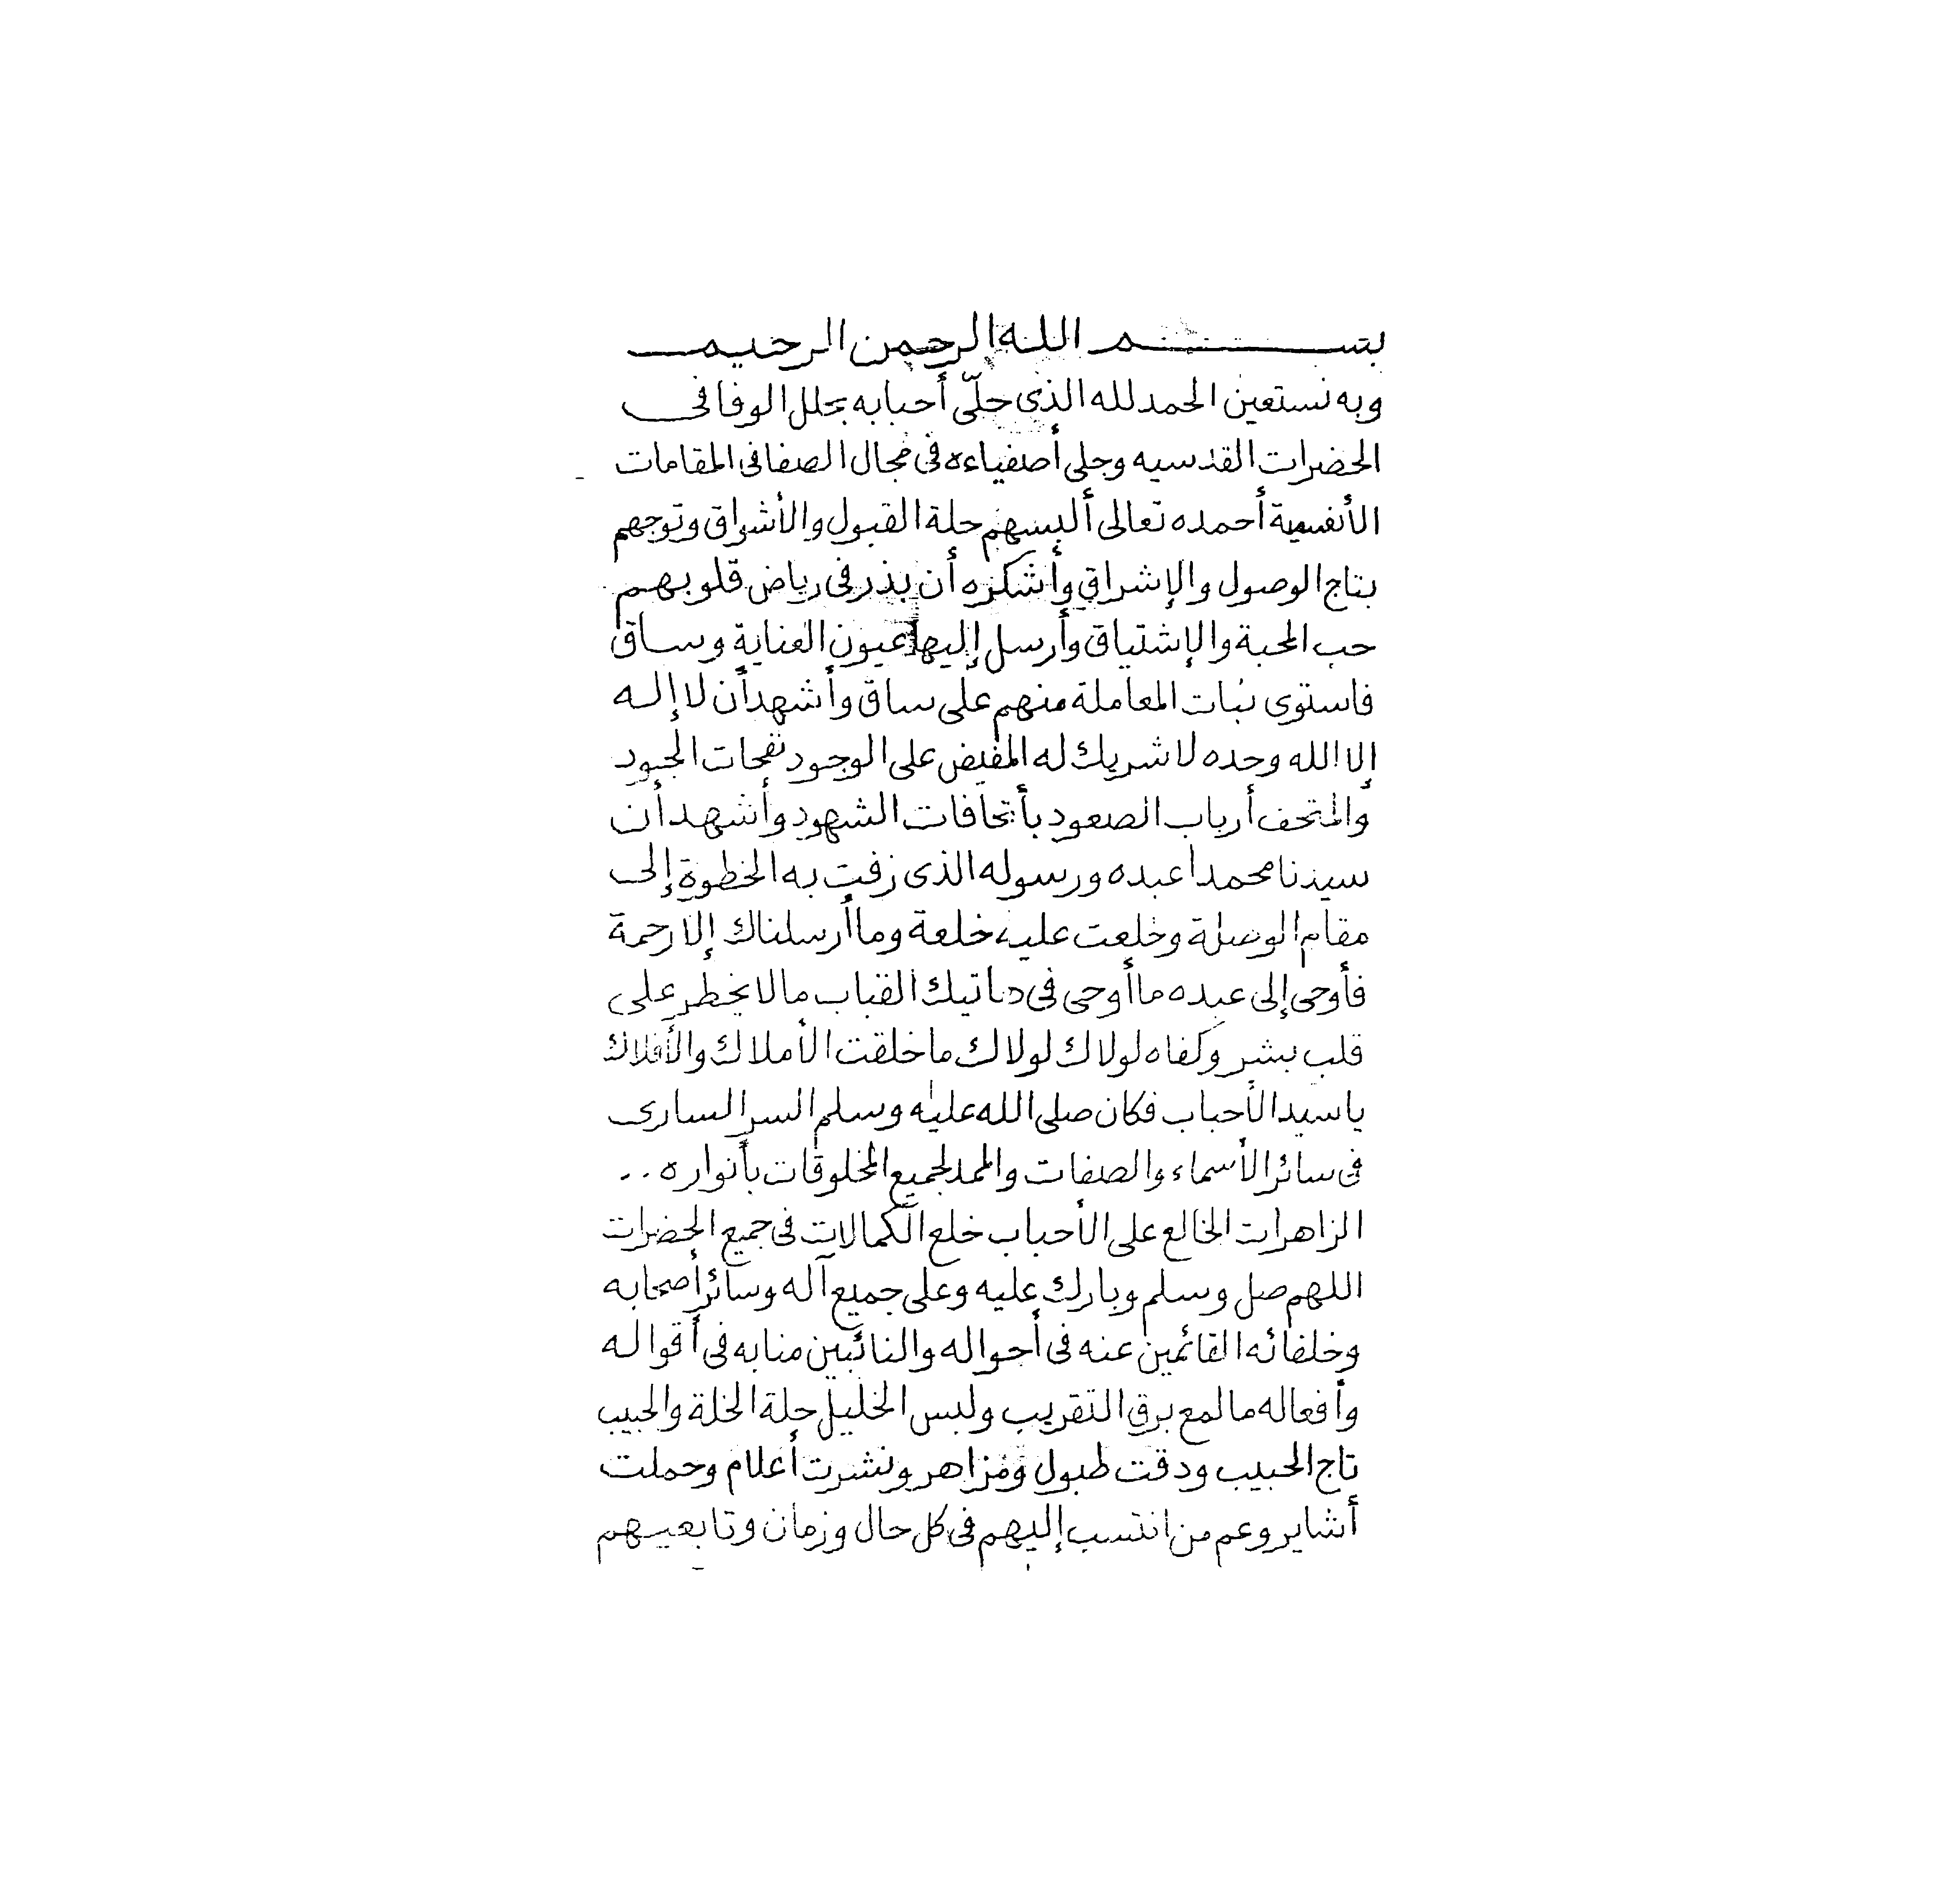 بسم الله الرحمن الرحيم
وبه نستعين الحمد لله الذى حلّى أحبابه بحلل الوفا فى
الحضرات القدسيه وجلى أصفياءه فى مجال الصفا فى المقامات
الأنفسية أحمده تعالى ألبسهم حلة القبول والأشراق وتوجهم
بتاج الوصول والإشراق وأشكره أن بذر فى رياض قلوبهم
حب المحبة والإشتياق وأرسل إليها عيون العناية وساق
فاستوى نبات المعاملة منهم على ساق وأشهد أن لا إله
إلا الله وحده لا شريك له المفيض على الوجود نفحات الجود
والمتحف أرباب الصعود بأتحافات الشهود وأشهد أن
سيدنا محمدا عبده ورسوله الذى زفت به الخطوة إلى
مقام الوصلة وخلعت عليه خلعة وما أرسلناك إلا رحمة
فأوحى إلى عبده ما أوحى فى هاتيك القباب ما لا يخطر على
قلب بشر وكفاه لولاك لولاك ما خلقت الأملاك والأفلاك
يا سيد الأحباب فكان صلى الله عليه وسلم السر السارى
فى سائر الأسماء والصفات والممد لجميع المخلوقات بأنواره ..
الزاهرات الخالع على الأحباب خلع الكمالات فى جميع الحضرات
اللهم صل وسلم وبارك عليه وعلى جميع آله وسائر أصحابه
وخلفائه القائمين عنه فى أحواله والنائبين منابه فى أقواله
وأفعاله ما لمع برق التقريب ولبس الخليل حلة الخلة والحبيب
تاج الحبيب ودقت طبول ومزاهر ونشرت أعلام وحملت
أشاير وعم من انتسب إليهم فى كل حال وزمان وتابعيهم